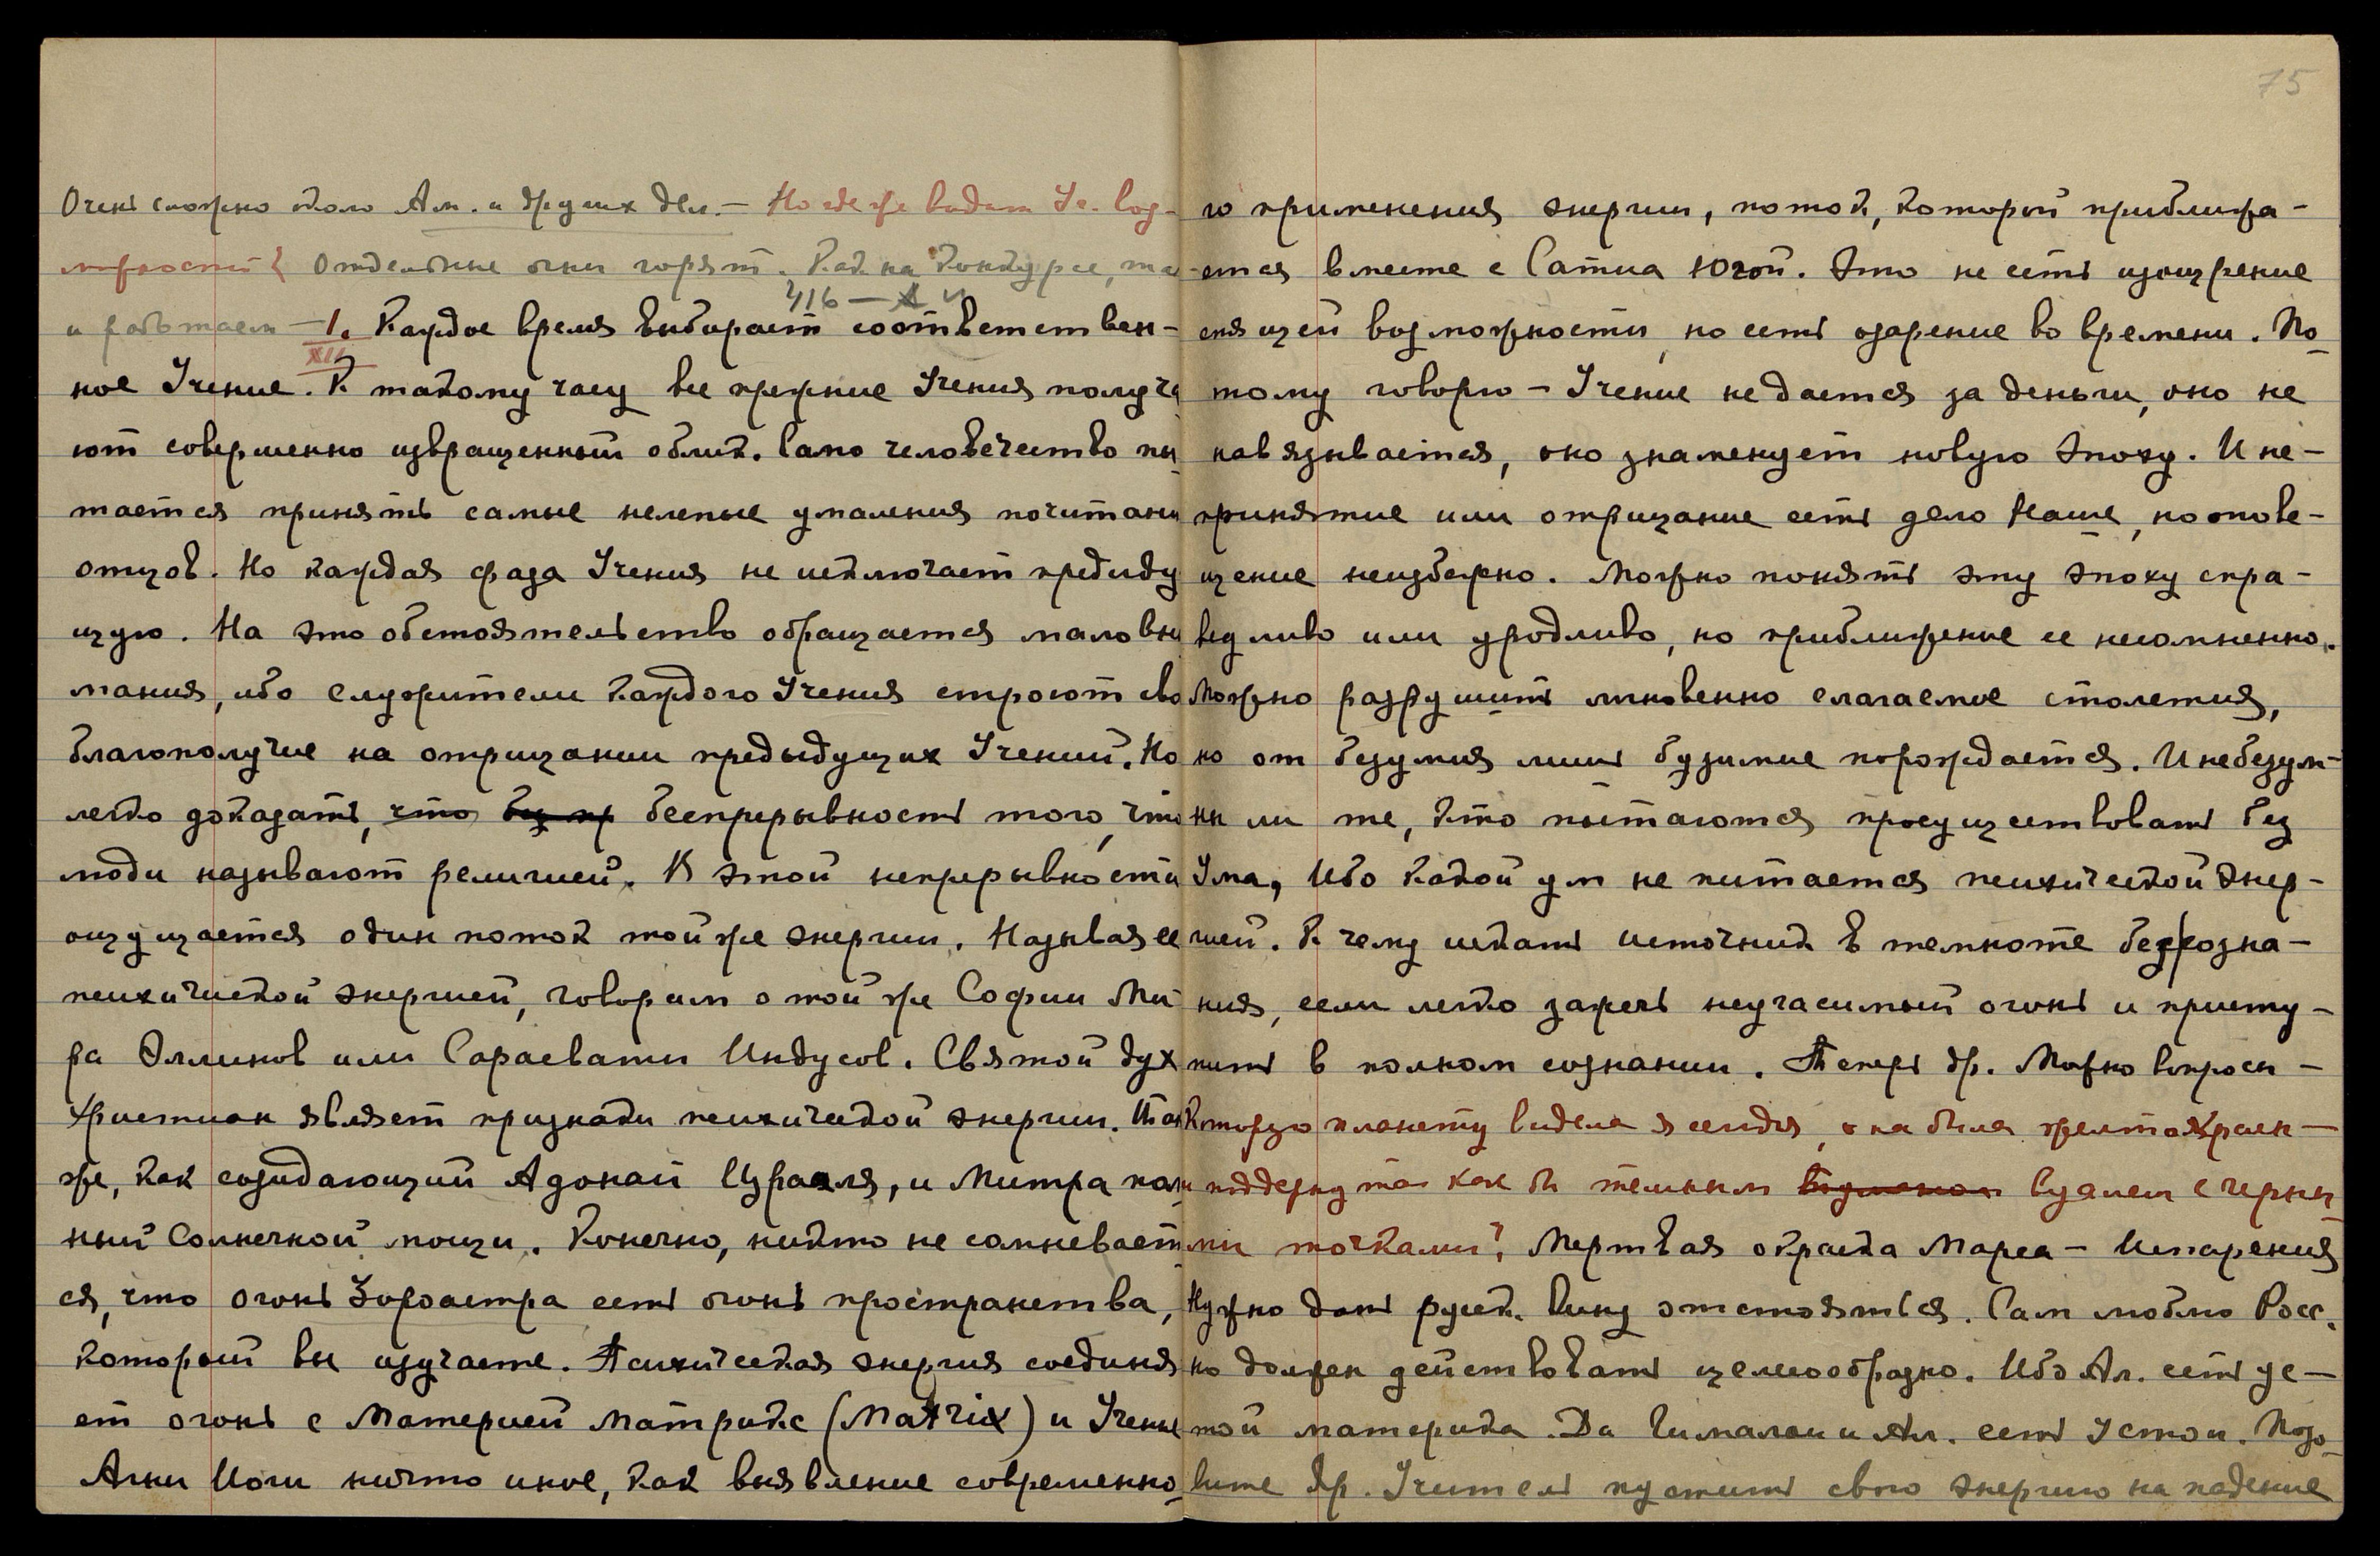 Очень сложно около Ам. и других дел. — Но где же видит Уч. воз-
можности? Отдельные огни горят. Как на конкурсе, так
и работаем —
416 —
1. Каждое время выбирает соответствен-
XII
ное Учение. К такому часу все прежние Учения получа
ют совершенно извращенный облик. Само человечество пы
тается принять самые нелепые умаления почитани
отцов. Но каждая фаза Учения не исключает предиду
щую. На это обстоятельство обращается мало вни
мания, ибо служители каждого Учения строют сво
благополучие на отрицании предыдущих Учений. Но
легко доказать, что без пр беспрерывность того, что
люди называют религией. В этой непрерывности
ощущается один поток той же энергии. Называя ее
психической энергией, говорим о той же Софии Ми-
ра Эллинов или Сарасвати Индусов. Святой дух
Христиан являет признаки психической энергии. Так
же, как созидающий Адонай Израаля, и Митра пол
ный Солнечной мощи. Конечно, никто не сомневает
ся, что огонь Зороастра есть огонь пространства,
который вы изучаете. Психическая энергия соединя
ет огонь с Материей Матрикс (Matrix) и Учение
Агни Йоги ничто иное, как выявление современно-
75
го применения энергии, поток, который приближа-
ется вместе с Сатиа Югой. Это не есть изощрение
спящей возможности, но есть озарение во времени. По-
тому говорю — Учение не дается за деньги, оно не
навязывается, оно знаменует новую Эпоху. И не-
принятие или отрицание есть дело Наше, но опове-
щение неизбежно. Можно понять эту эпоху спра-
ведливо или уродливо, но приближение ее несомненно.
Можно разрушить мгновенно слагаемое столетия,
но от безумия лишь бузимие порождается. И не безум-
ны ли те, кто пытаются просуществовать без
Ума, Ибо какой ум не питается психической энер-
гией. К чему искать источник в темноте безсозна-
ния, если легко зажечь неугасимый огонь и присту-
пить в полном сознании. Теперь др. Можно вопросы —
Которую планету видела я сегодня, она была желтокрасн —
поддернута как бы темным вуалем с черны
ми точками? Мертвая окраска Марса — Испарения
Нужно дать русск. вину отстояться. Сам люблю Росс.
но должен действовать целесообразно. Ибо Ал. есть ус —
той материка. Да Гималаи и Ал. есть Устои. Позо-
вите др. Учитель пустить свою энергию на падение